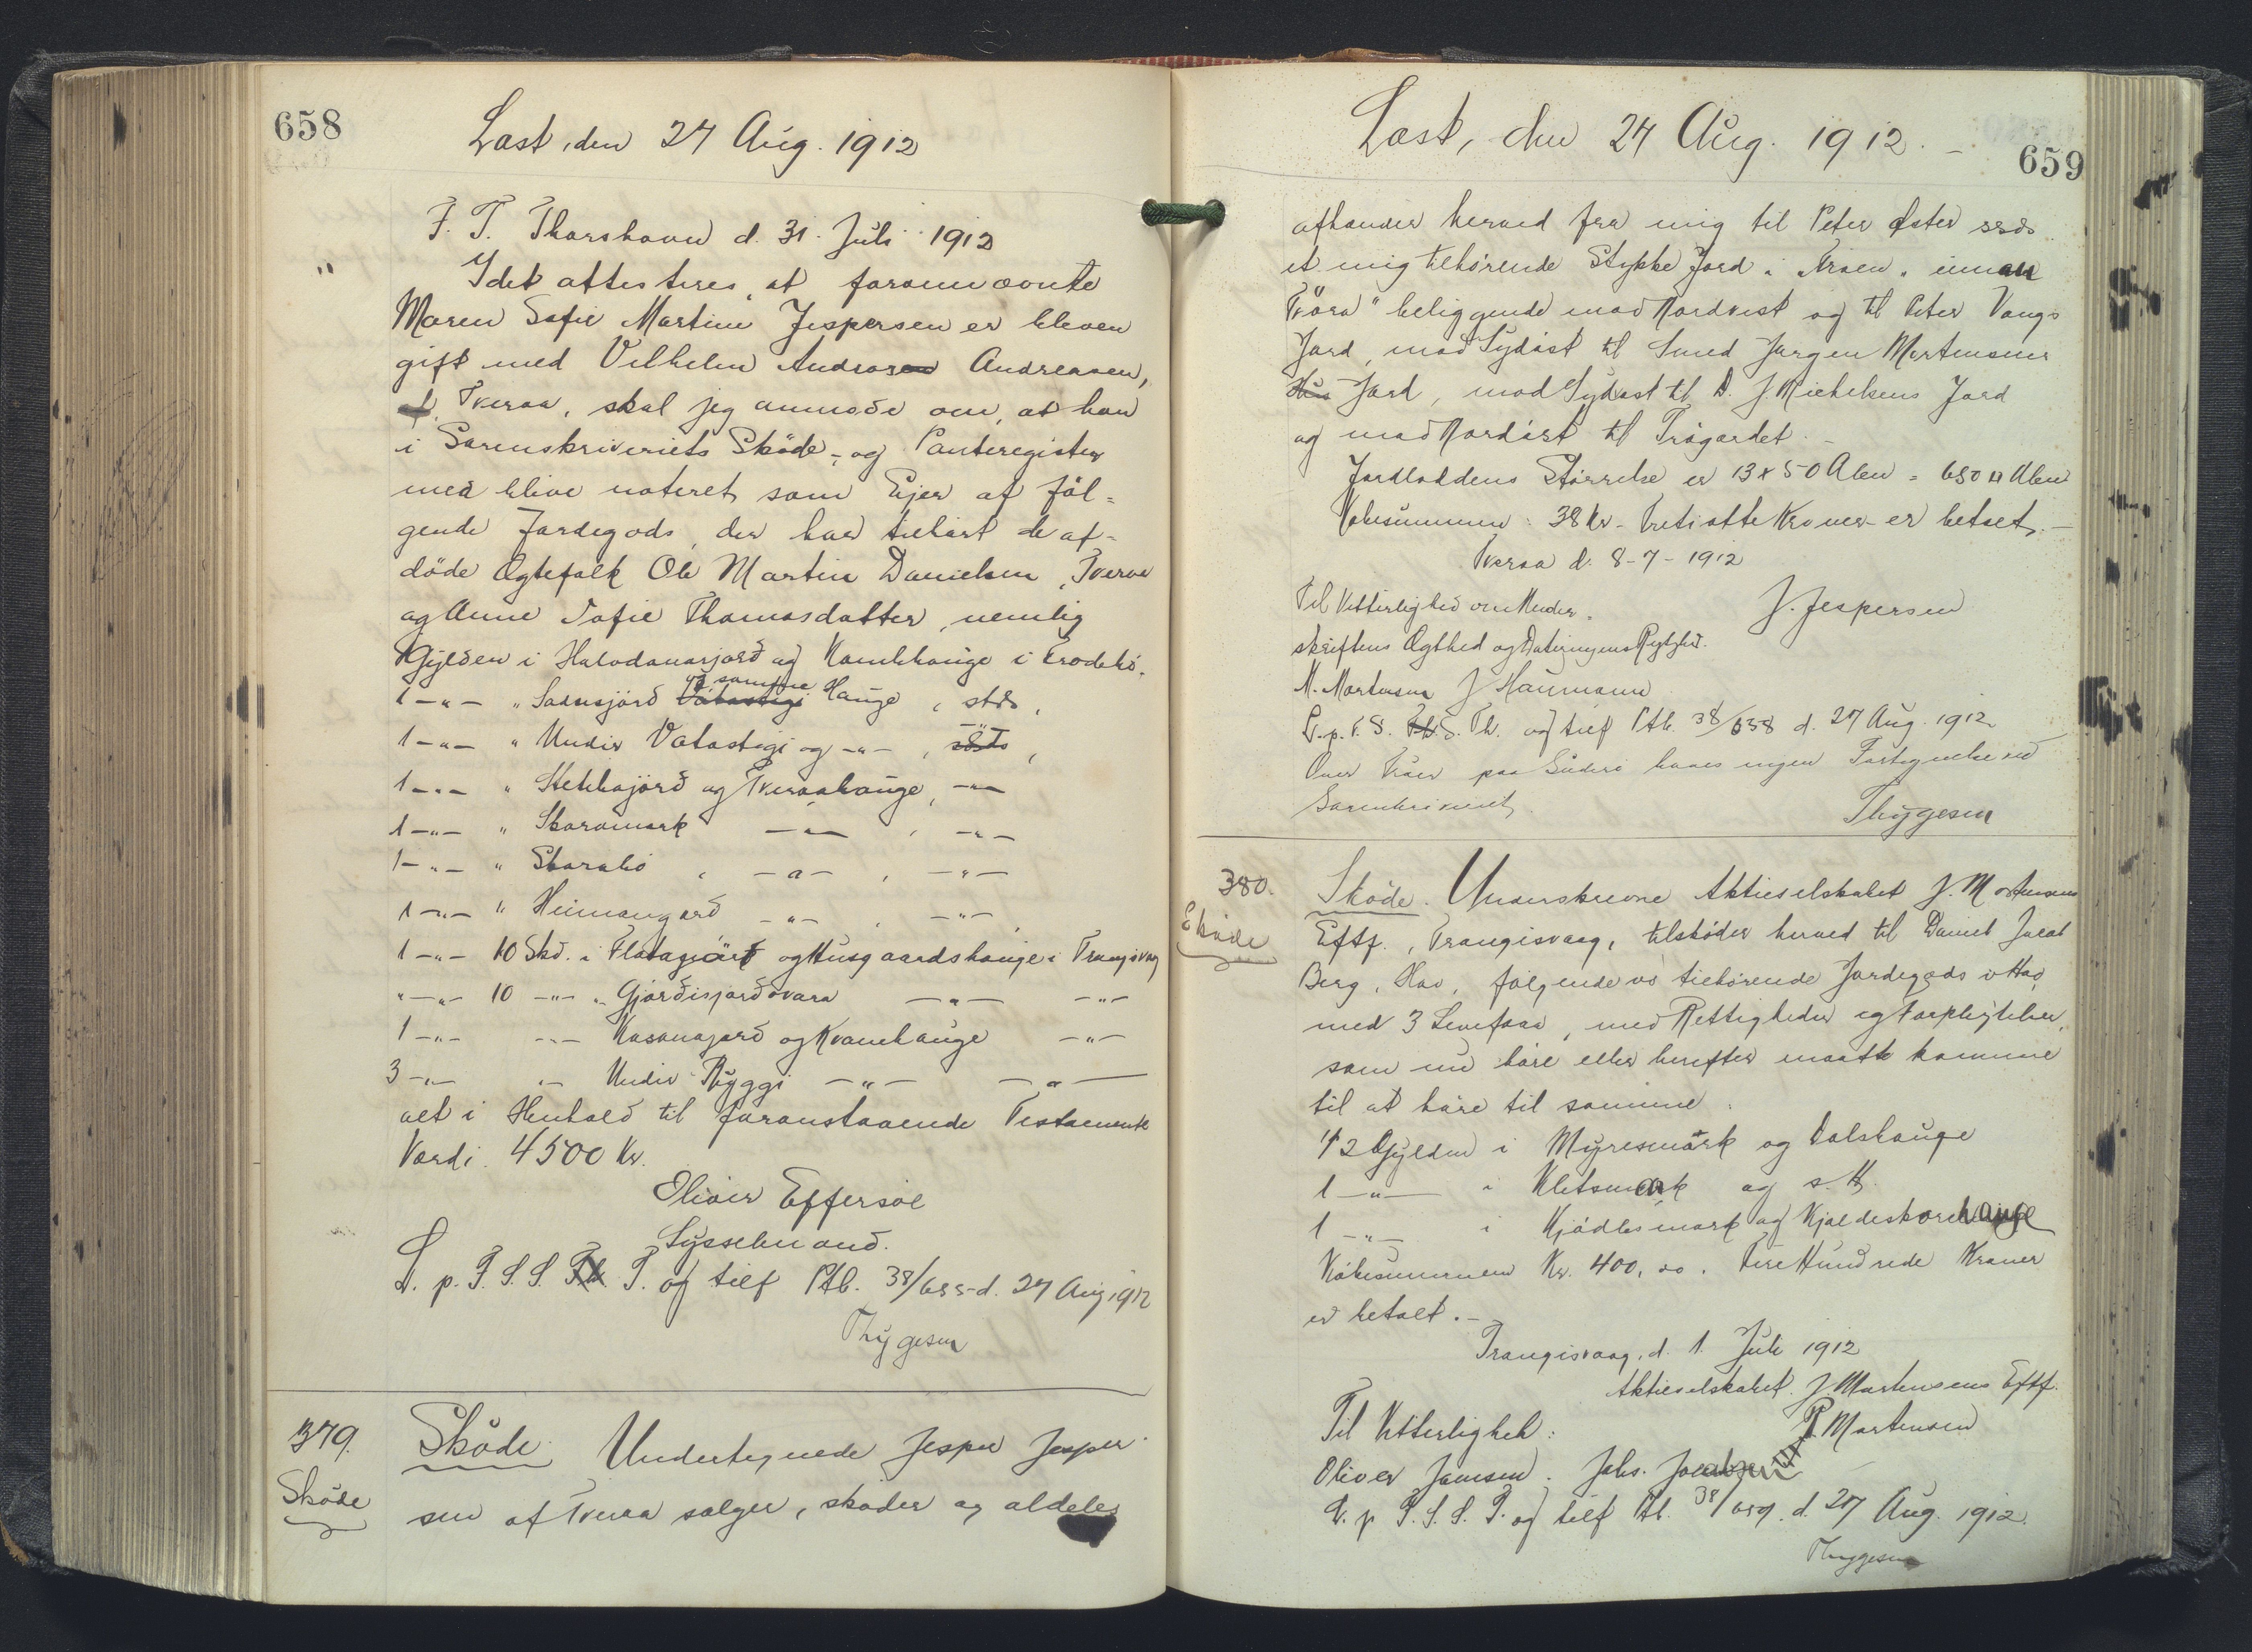 658
Læst, den 27 Aug. 1912
F. T. Thorshavn d. 31. Juli 1912
" Idet attesteres, at forannævnte
Maren Sofie Martine Jespersen er bleven
gift med Vilhelm Andreasen,
Tveraa, skal jeg anmode om, at han
i Sorenskriveriets Skøde- og Panteregister
maa blive noteret som Ejer af føl=
gende Jordegods, der har tilhørt de af=
døde Ægtefolk Ole Martin Danielsen, Tveraa
og Anne Sofie Thomasdatter, nemlig
Gylden i og i
1 -"- " og samme Hauge, stds.
1 -"- " Undir Vatastigi og -"- ,
1 -"- " Stekkajørd og Tveraahauge, -"-
1 -"- " Skoramork -"- , -"-
1 -"- " Skorabø , -"- , -"-
1 -"- " Heimangard -"- , -"-
1 -"- 10 Skd. i og Husgaardshauge i Trangisvaag
"-"- 10 -"- " -"- -"-
1 -"- -"- og Kvannhauge -"-
3 -"- "- Undir Ryggi -"- -"-
alt i Henhold til foranstaaende Testamente
Værdi. 4500 Kr.
Oliver Effersøe
Sysselmand.
L. p. F. S. S. T. og tilf Ptb. 38/655 d. 27 Aug 1912
Thygesen
379. Skøde. Undertegnede Jesper Jesper=
Skøde sen af Tveraa sælger, skøder og aldeles
659
Læst, den 27 Aug. 1912. -
afhænder herved fra mig til Peter Øster ssds
et mig tilhørende Stykke Jord i Trøen. innan
Tvöra" beliggende mod Nordvest og til Peter Vangs
Jord, mod Sydøst til Smed Jørgen Mortensens
Jord, mod Sydvest til D. J. Michelsens Jord
og mod Nordøst til Trøgardet. -
Jordloddens Størrelse er 13 x 50 Alen = 650 □ Alen
Købesummen: 38 Kr - treti otte Kroner - er betalt. -
Tveraa d. 8-7-1912
Til Vitterlighed om Under-
J. Jespersen
skriftens Ægthed og Dateringens Rigtighed.
M. Mortensen J Haumann
L. p. F. S. S. Th. og tilf Ptb. 38/658 d. 27 Aug. 1912
Over Trøer paa Suderø haves ingen Fortegnelse ved
Sorenskriveriet.
Thygesen
380. Skøde. Underskrevne Aktieselskabet J. Mortensens
Skøde Eftf., Trangisvaag, tilskøder herved til Daniel Jacob
Berg, Hov, følgende os tilhørende Jordegods i Hov
med 3 Levefaar, med Rettigheder og Forpligtelser,
som nu høre eller herefter maatte komme
til at høre til samme.
1/2 Gylden i Myresmørk og Dalshauge
1 -"- i Kletsmørk og s. H.
1 -"- i og Kjældeskorehauge
Købesummen Kr. 400,00. Fire Hundrede Kroner
er betalt. -
Trangisvaag, d. 1. Juli 1912
Aktieselskabet J Mortensens Eftf.
Til Vitterlighed: P Mortensen
Oliver Jensen. Johs. Jacobsen
L. p F. S. S. T. og tilf Ptb. 38/659. d. 27 Aug. 1912.
Thygesen